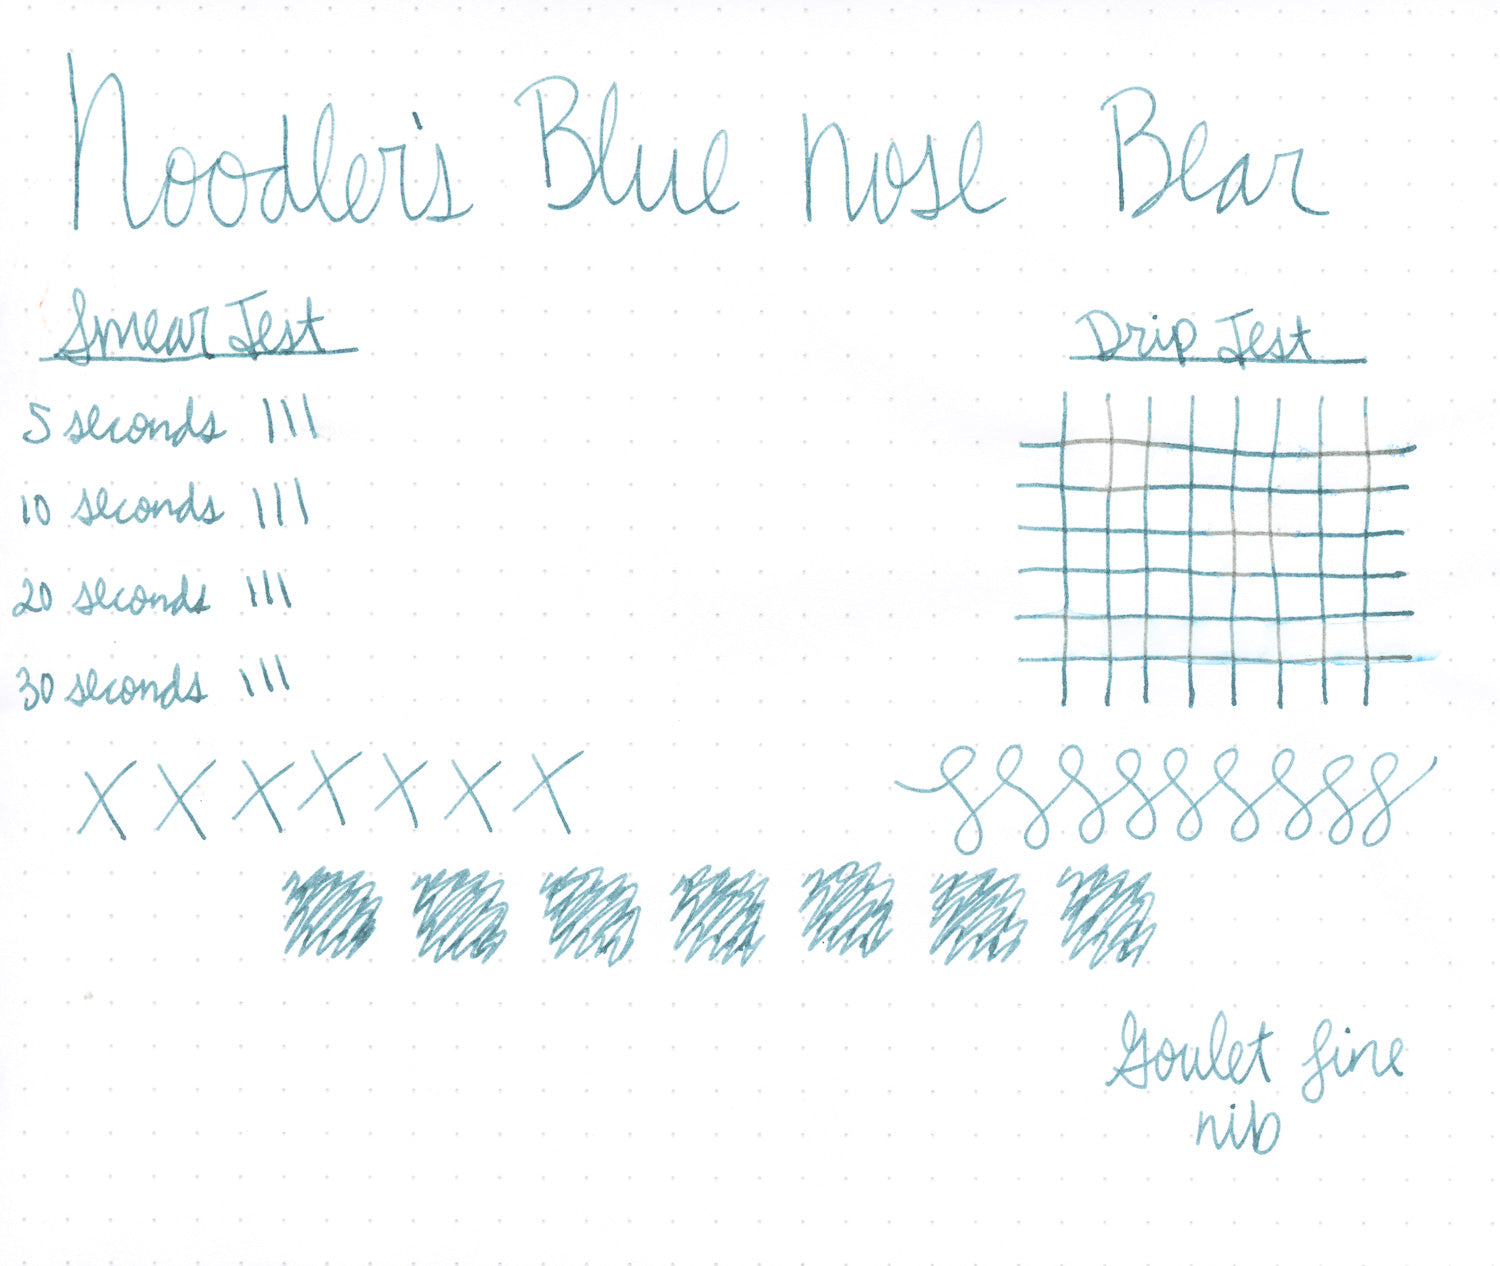 Noodler's Blue Nose Bear
Smear Test
Drip Test
5 seconds |||
10 seconds |||
20 seconds |||
30 seconds |||
X X X X X X X
Goulet fine
nib